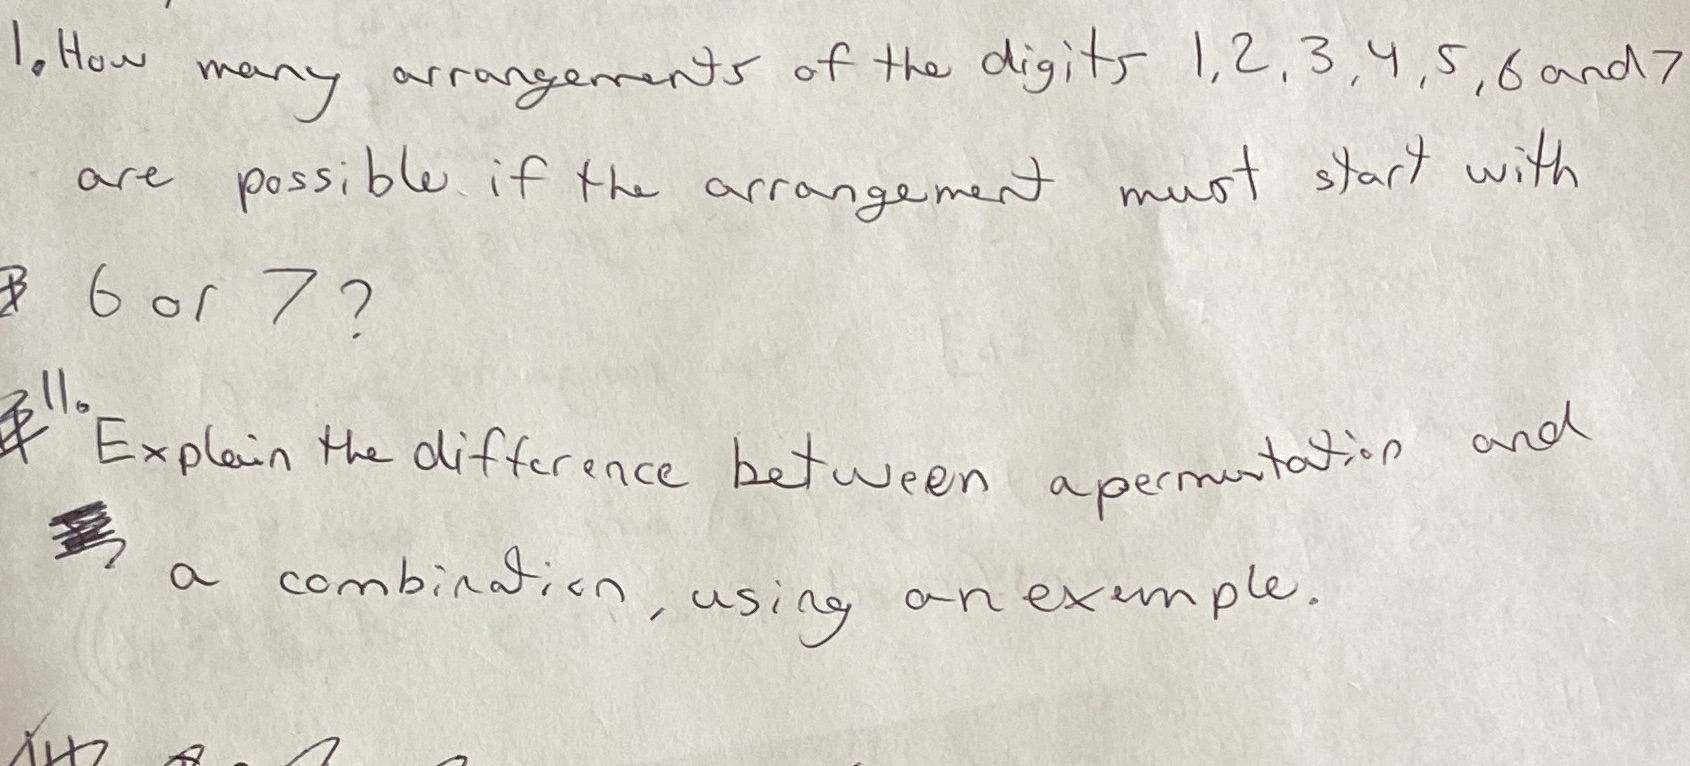 1. How many arrangements of the digits 1, 2, 3, 4, 5, 6 and 7
are possible if the arrangement must start with
6 or 7?
11.
Explain the difference between a permutation and
a combination, using an exemple.